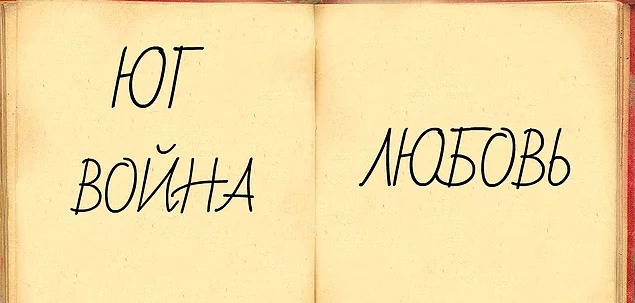 ЮГ
ВОЙНА
ЛЮБОВЬ